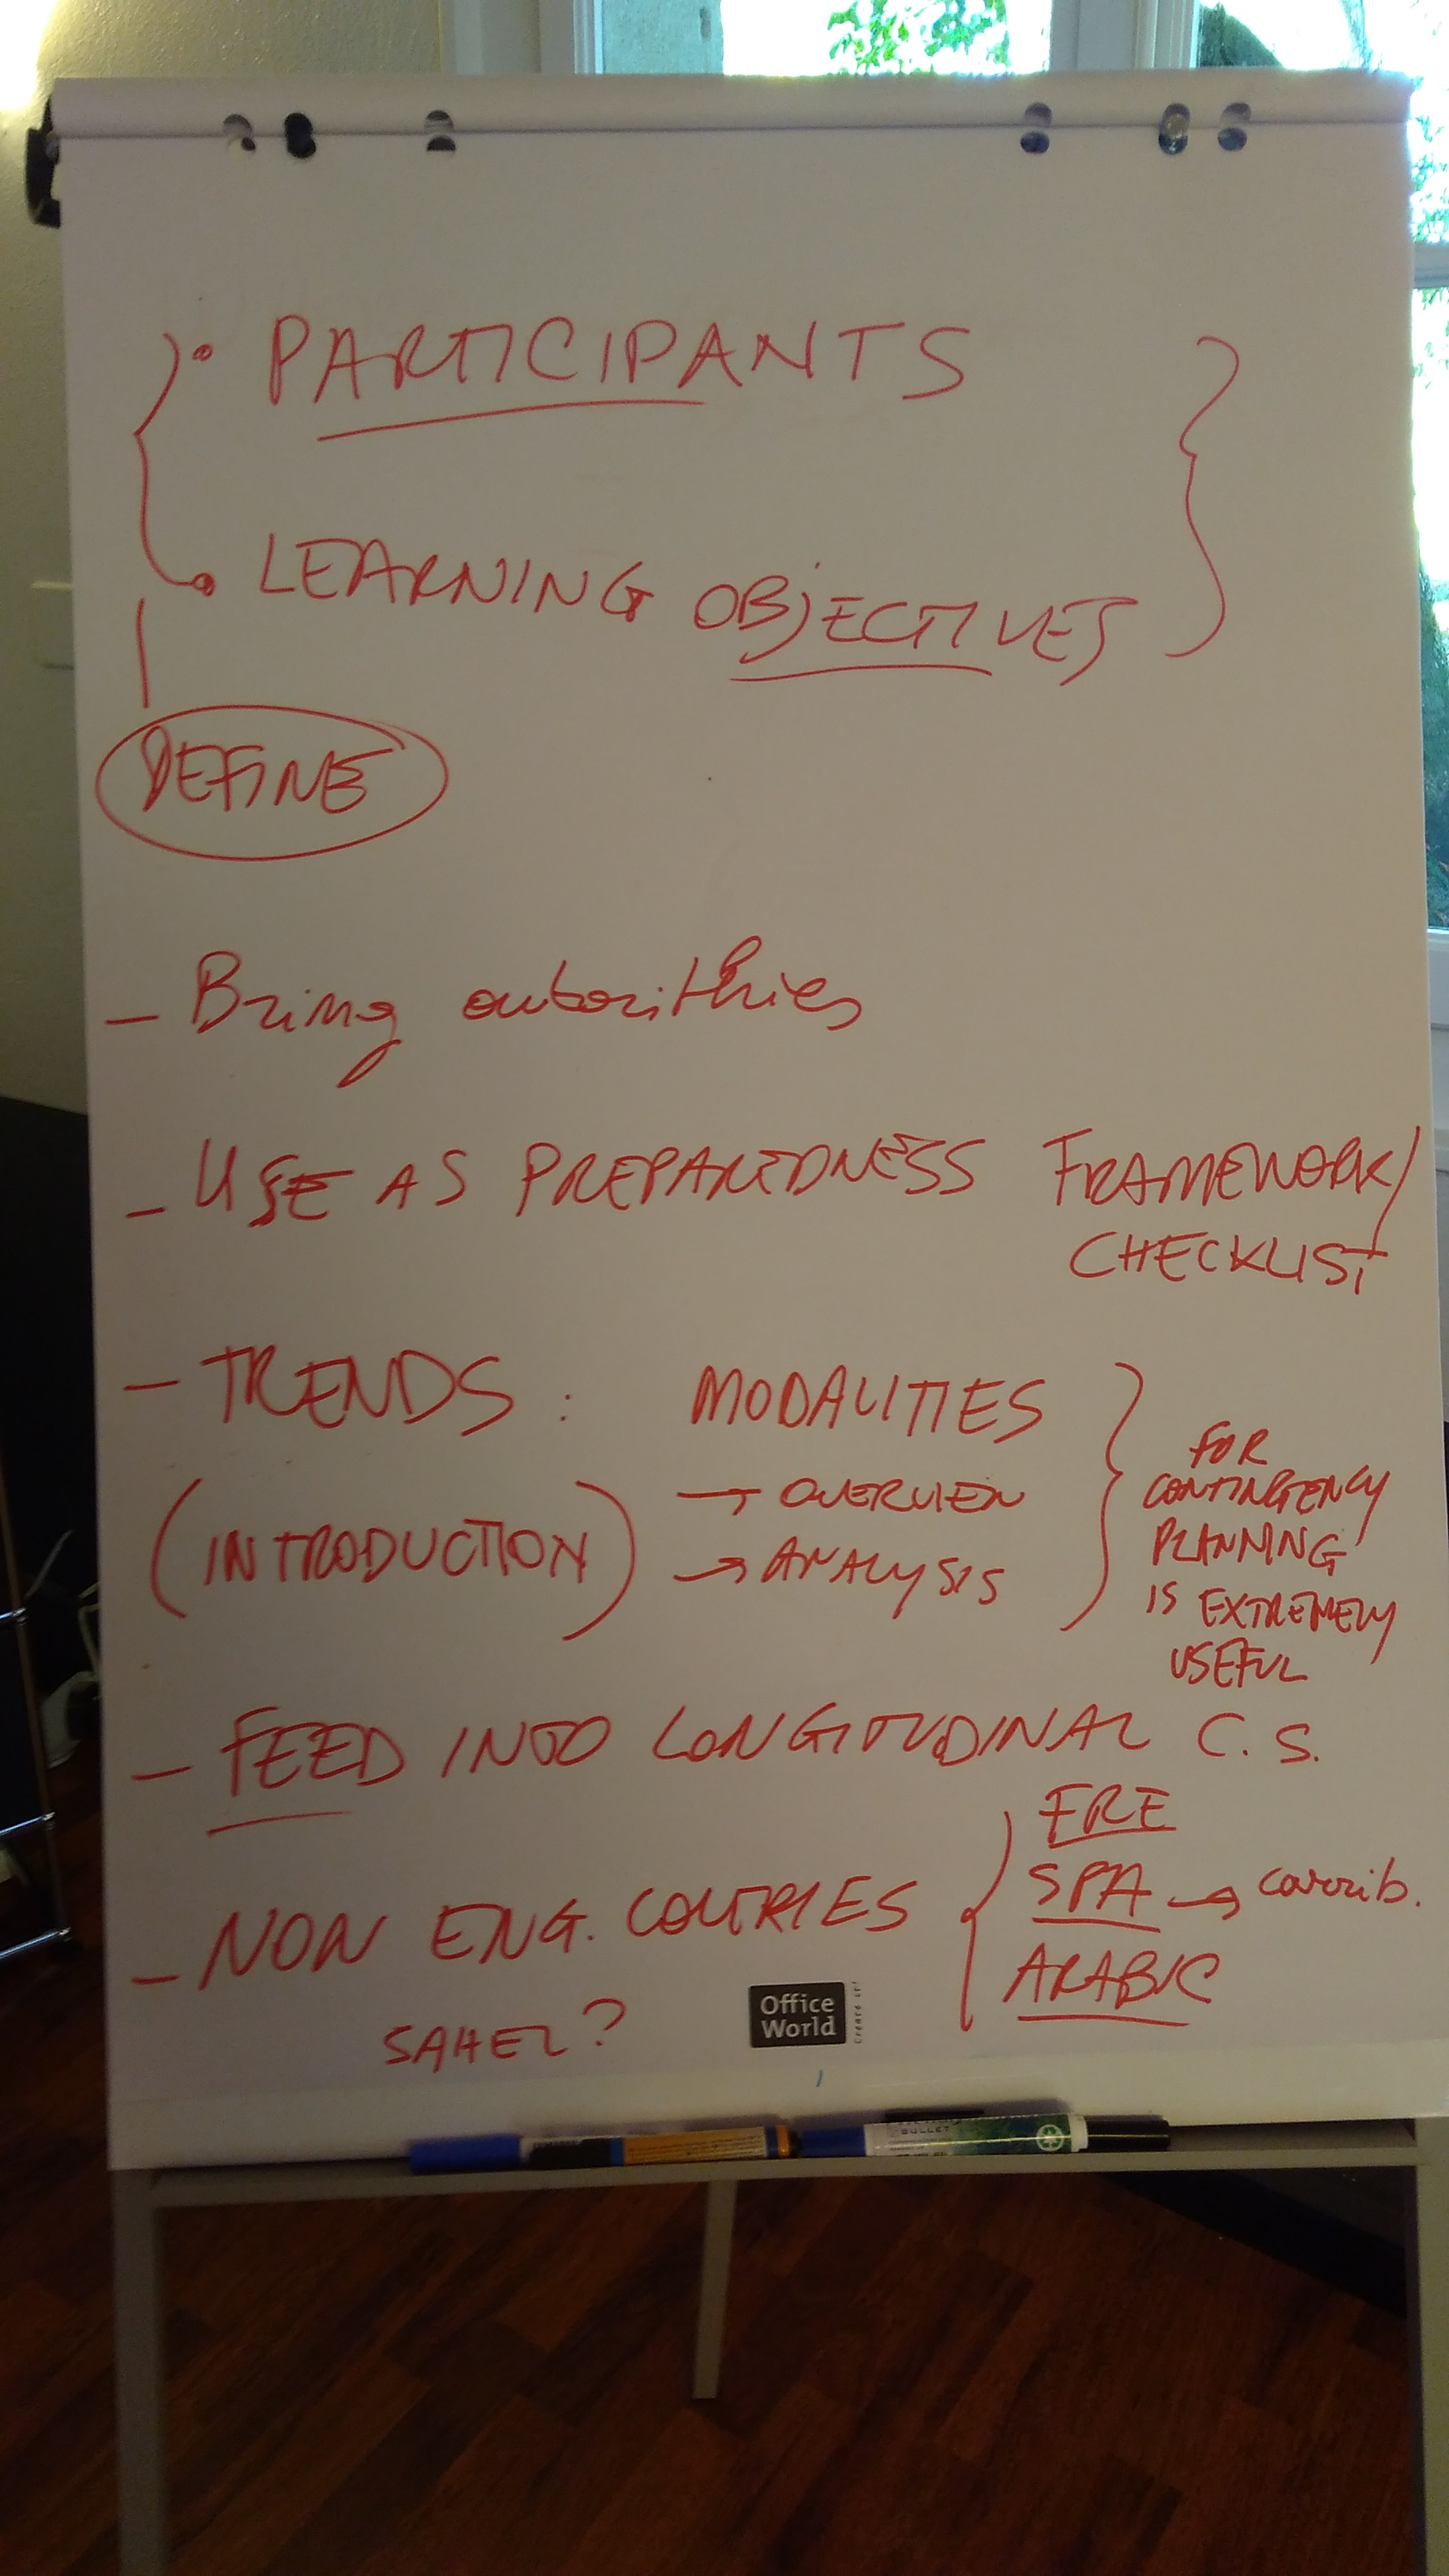 • PARTICIPANTS
• LEARNING OBJECTIVES
DEFINE
- Bring autorithies
- USE AS PREPAREDNESS FRAMEWORK/
CHECKLIST
- TRENDS : MODALITIES
(INTRODUCTION) → OVERVIEW
→ ANALYSIS
FOR
CONTINGENCY
PLANNING
IS EXTREMELY
USEFUL
- FEED INTO LONGITUDINAL C.S.
- NON ENG. COUTRIES
FRE
SPA → carrib.
ARABIC
SAHEL?
Office
World
create it!
BULLET